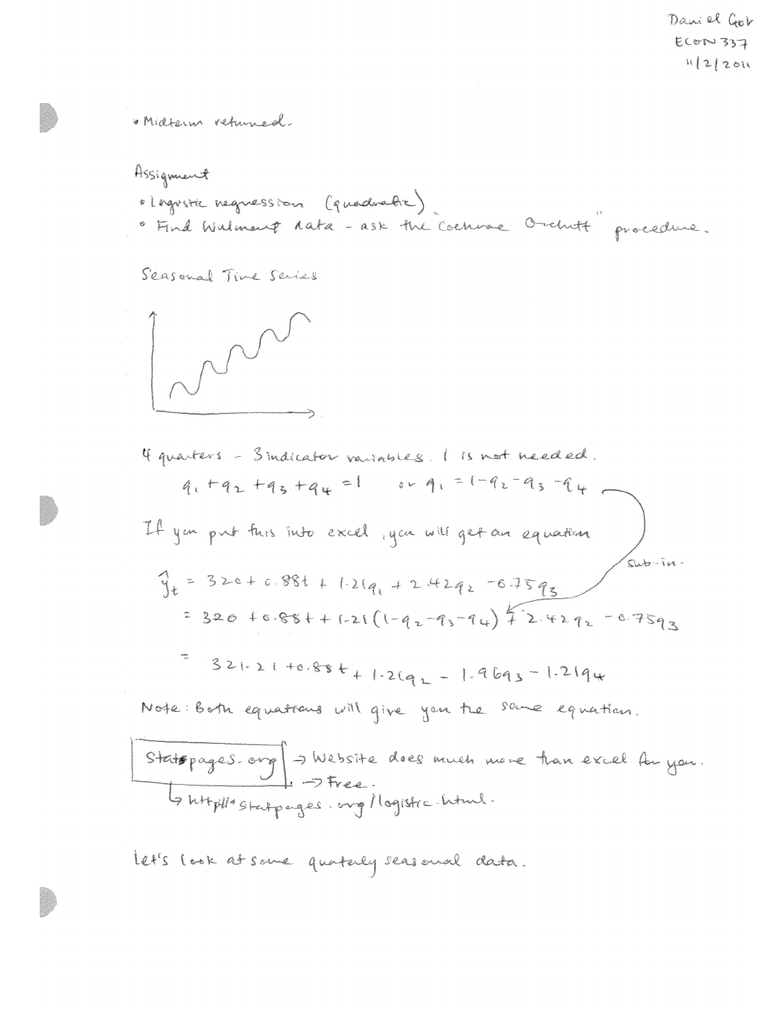 Daniel Gov
ECON 337
11/2/2011
• Midterm returned.
Assignment
• Logistic regression (quadratic)
• Find Walmart data - ask the "Cochrane Orchutt" procedure.
Seasonal Time Series
4 quarters - 3 indicator variables. 1 is not needed.
q₁ + q₂ + q₃ + q₄ = 1 or q₁ = 1 - q₂ - q₃ - q₄
If you put this into excel, you will get an equation
sub-in.
ŷₜ = 320 + 0.88t + 1.21q₁ + 2.42q₂ - 0.75q₃
= 320 + 0.88t + 1.21(1 - q₂ - q₃ - q₄) + 2.42q₂ - 0.75q₃
= 321.21 + 0.88t + 1.21q₂ - 1.96q₃ - 1.21q₄
Note: Both equations will give you the same equation.
Statpages.org → Website does much more than excel for you.
→ Free.
↳ http// statpages.org/logistic.html.
Let's look at some quaterly seasonal data.